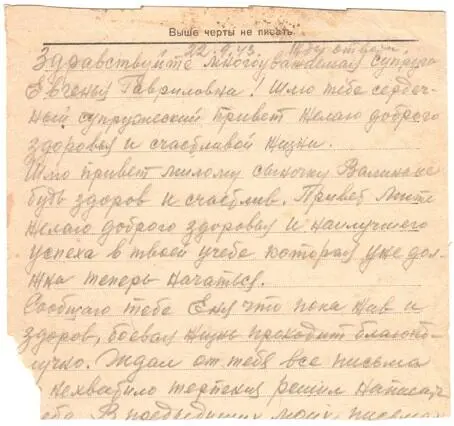 Выше черты не писать
22.9.43 Жду ответ
Здравствуйте многоуважаемая супруга
Евгенья Гавриловна! Шлю тебе сердеч-
ный супружеский привет желаю доброго
здоровья и счастливой жизни.
Шлю привет милому сыночку Валиньке
будь здоров и счастлив. Привет Мите
желаю доброго здоровья и наилучшего
успеха в твоей учебе которая уже дол-
жна теперь начаться.
Сообщаю тебе Еня что пока жив и
здоров, боевая жизнь проходит благопо-
лучно. Ждал от тебя все письма
нехватило терпения решил написат
В предыдущих моих письмах